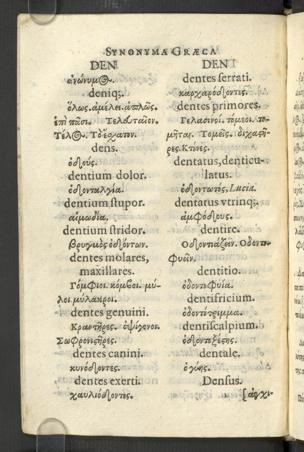 SYNONYMA GRÆCA
DEN
ἀνώνυμος.
deniq;.
ὅλως. ἀμέλει. ἁπλῶς.
ἐπὶ πᾶσι. Τελευταῖον.
Τέλος. Τὸ ἔσχατον.
dens.
ὀδούς.
dentium dolor.
ὀδονταλγία.
dentium stupor.
αἱμωδία,
dentium stridor.
Βρυγμὸς ὀδόντων.
dentes molares,
maxillares.
Γόμφιοι. κόμβοι. μύ-
λοι μύλακροι.
dentes genuini.
Κραντῆρες. ὀψίγονοι.
Σωφρονιστῆρες.
dentes canini.
κυνόδοντες.
dentes exerti.
χαυλιόδοντες.
DEN
dentes serrati.
καρχαρόδοντες.
dentes primores.
Γελασινοί. τομεῖοι. το-
μῆται. Τομεῖς. διχαστῆ-
ρες. Κτένες.
dentatus, denticu-
latus.
ὀδοντωτός, Lucia.
dentatus vtrinq;.
ἀμφόδους.
dentire.
Ὀδοντιάζειν. Ὀδοντο-
φυεῖν.
dentitio.
ὀδοντοφυΐα.
dentifricium.
ὀδοντότριμμα.
dentiscalpium.
ὀδοντοξέστης.
dentale.
Densus.